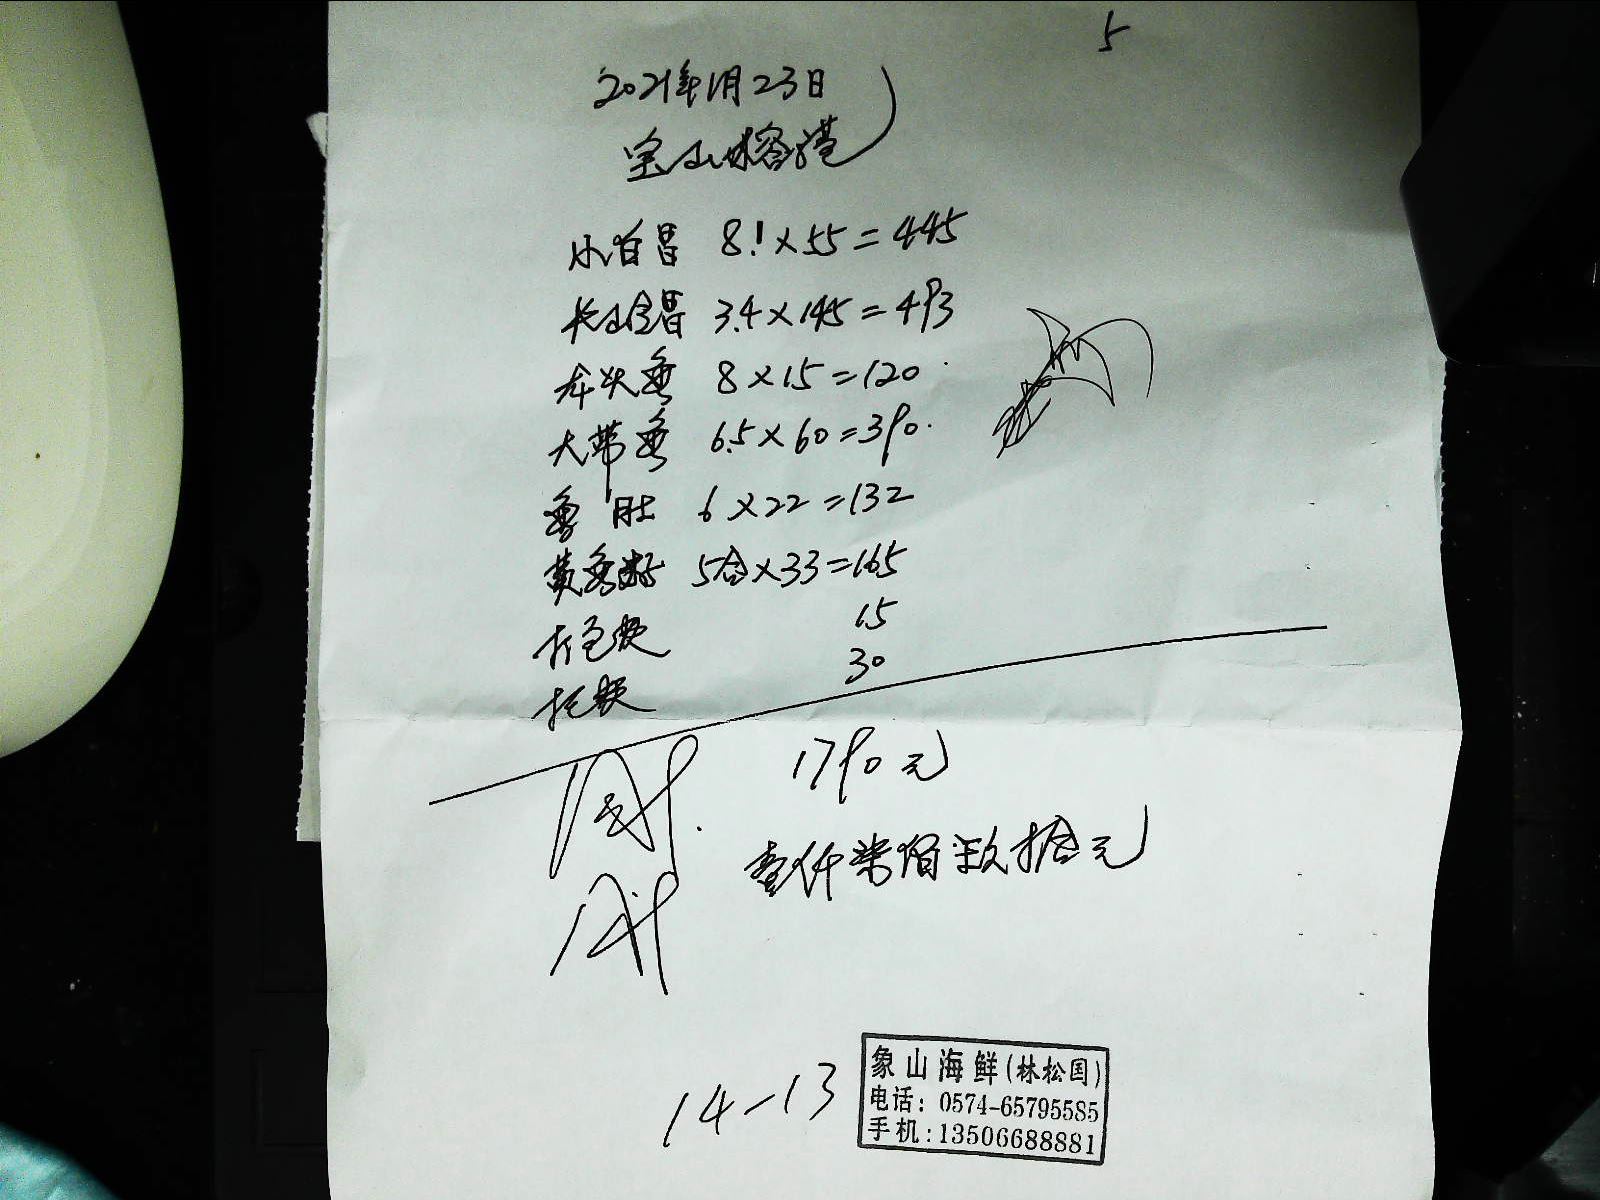 5
2021年1月23日
宝山榕港
小白昌 8.1×55=445
长山全昌 3.4×145=493
龙头鱼 8×15=120
大带鱼 6.5×60=390
鱼肚 6×22=132
黄鱼 5合×33=165
打包费 15
托费 30
1790元
壹仟柒佰玖拾元
14-13
象山海鲜(林松国)
电话: 0574-65795585
手机:13506688881